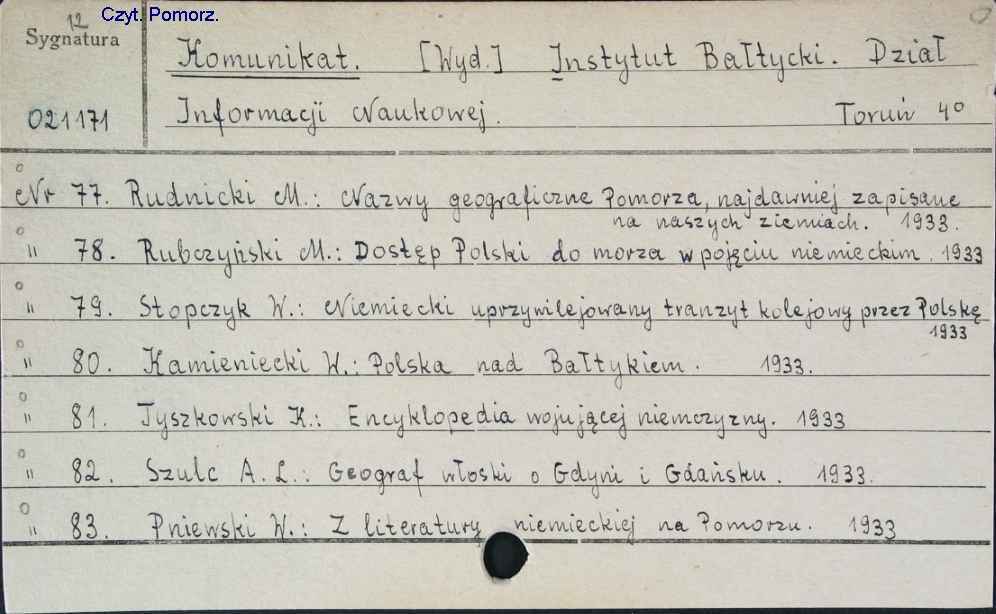 12 Czyt. Pomorz.
Sygnatura
Komunikat. [Wyd.] Instytut Bałtycki. Dział
021171 Informacji Naukowej. Toruń 4°
Nr 77. Rudnicki M.: Nazwy geograficzne Pomorza, najdawniej zapisane
na naszych ziemiach. 1933.
" 78. Rubczyński M.: Dostęp Polski do morza w pojęciu niemieckim. 1933
" 79. Stopczyk W.: Niemiecki uprzywilejowany tranzyt kolejowy przez Polskę
1933
" 80. Kamieniecki W.: Polska nad Bałtykiem. 1933.
" 81. Tyszkowski K.: Encyklopedia wojującej niemczyzny. 1933
" 82. Szulc A. L.: Geograf włoski o Gdyni i Gdańsku. 1933.
" 83. Pniewski W.: Z literatury niemieckiej na Pomorzu. 1933